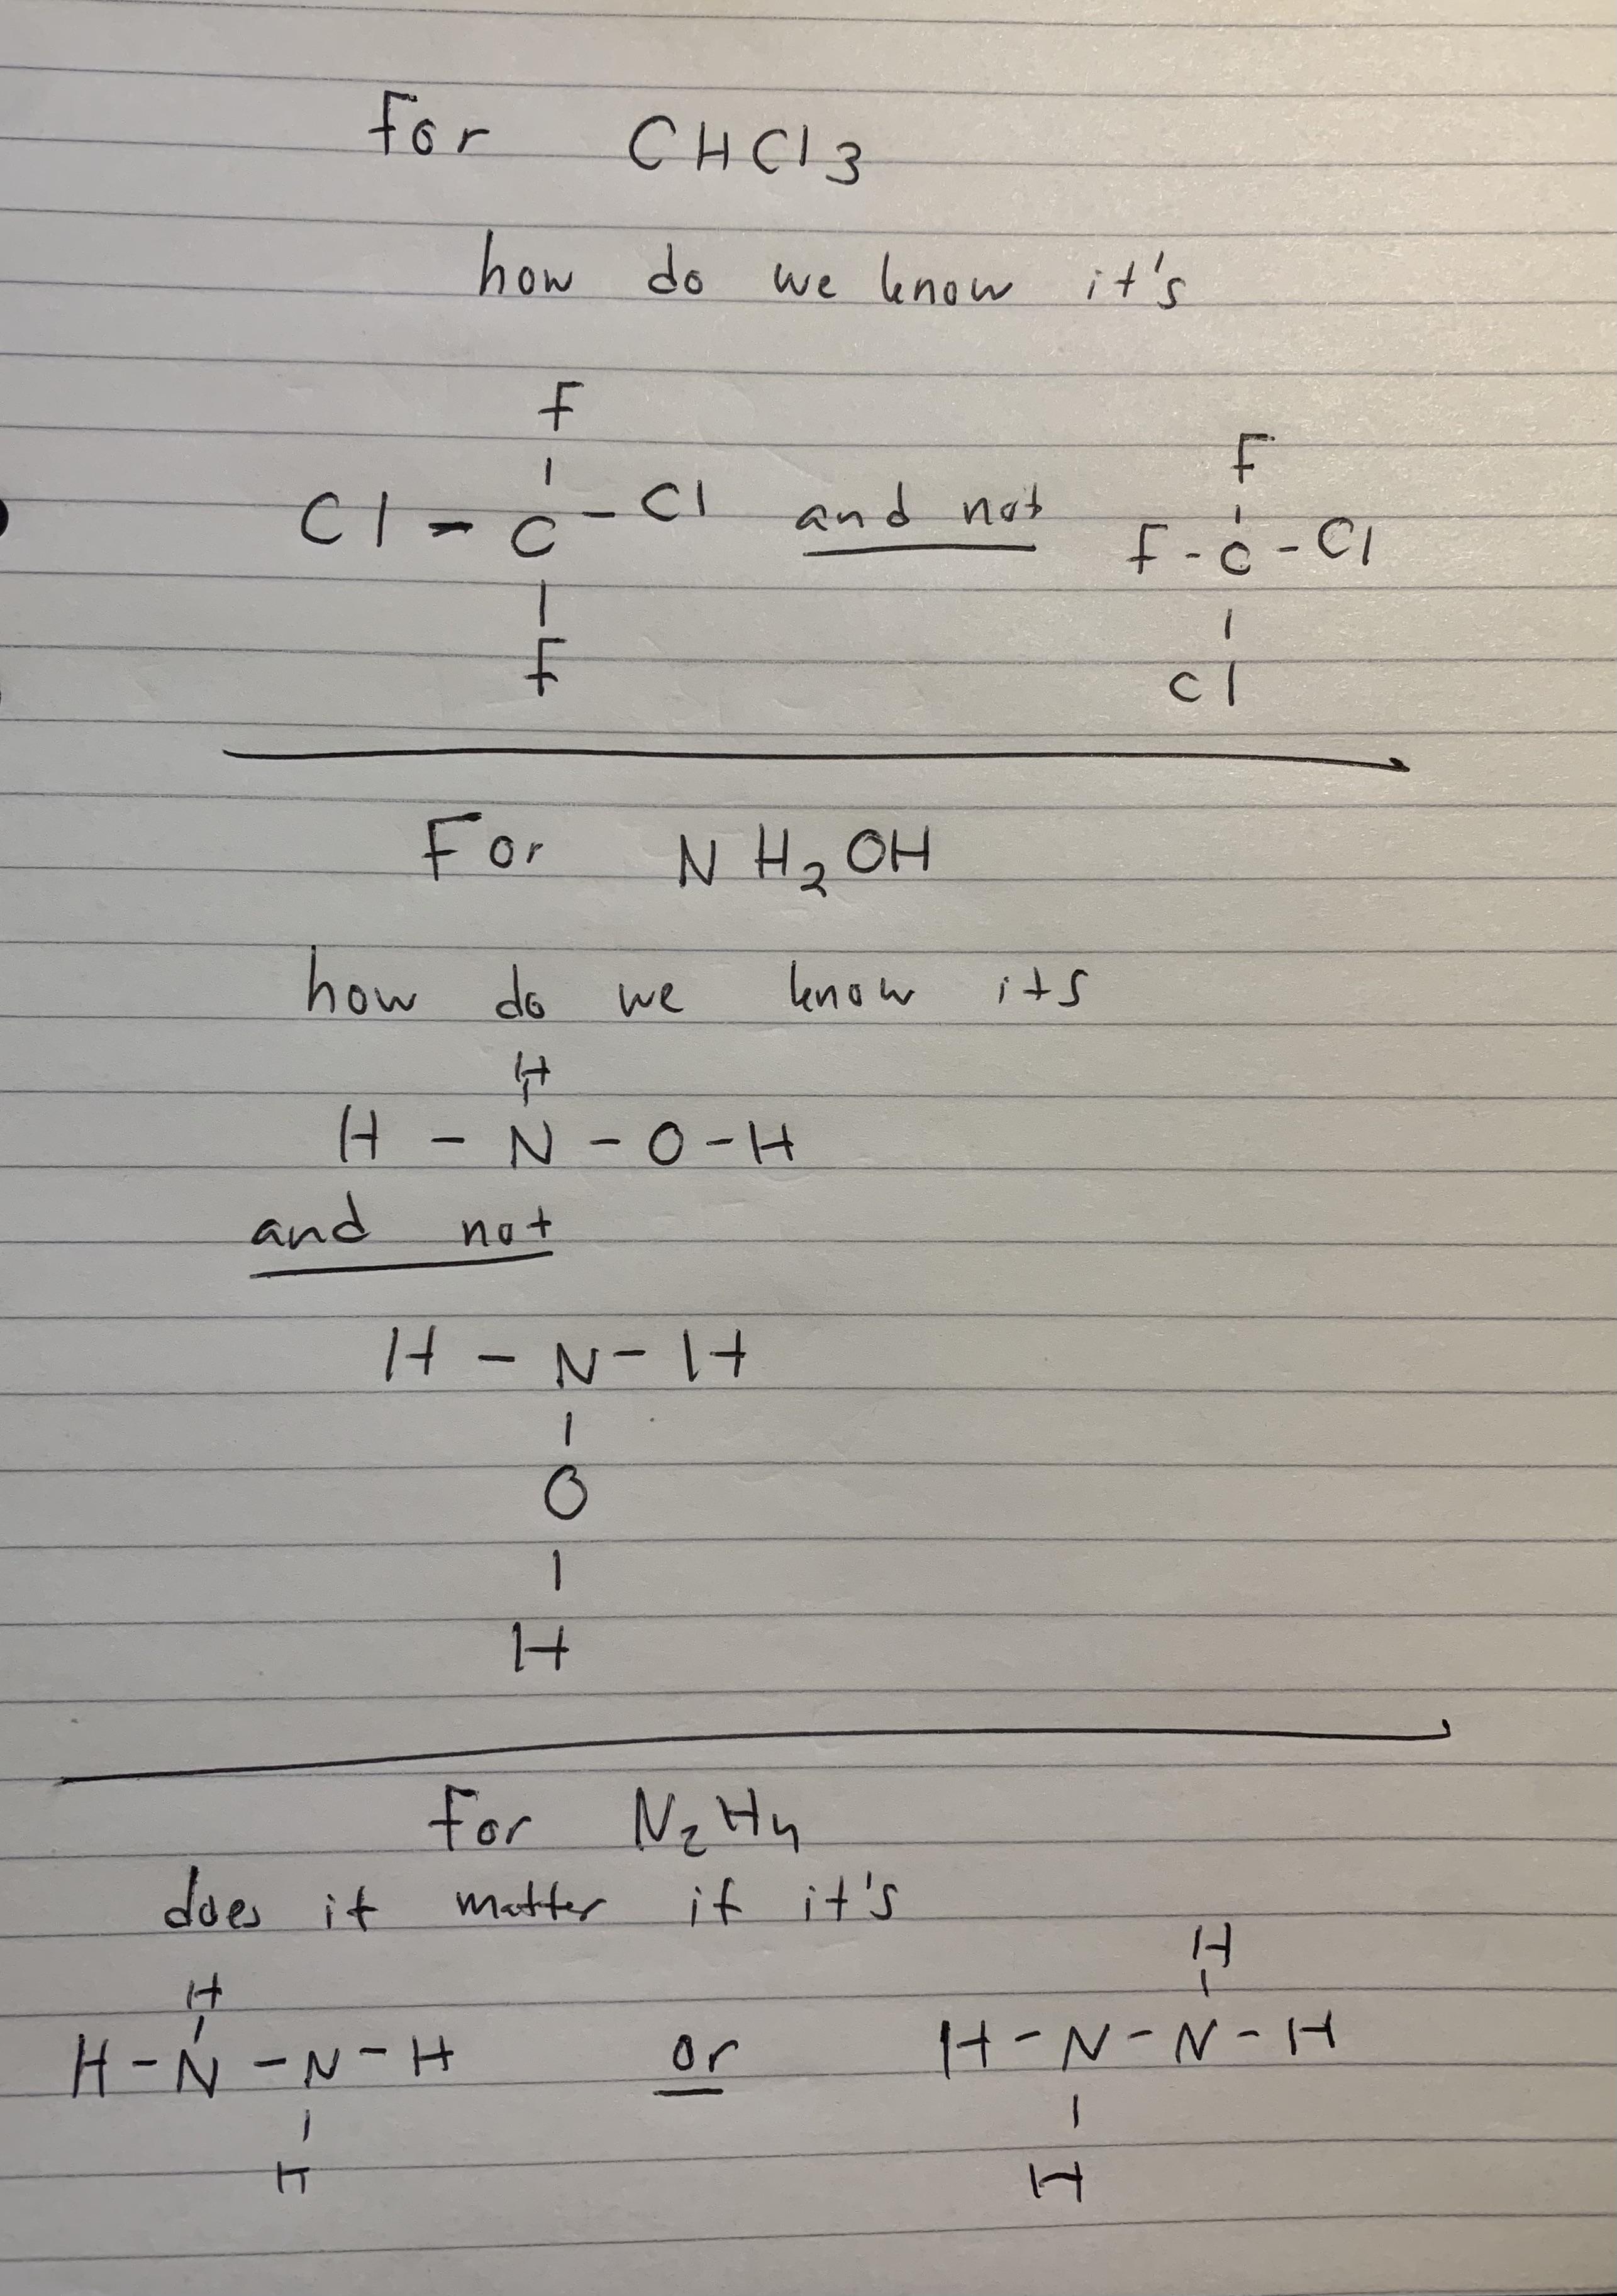 For CHCl3
how do we know it's
F
|
Cl - C - Cl and not
|
F
F
|
F - C - Cl
|
Cl
For NH2OH
how do we know its
H
|
H - N - O - H
and not
H - N - H
|
O
|
H
For N2H4
does it matter if it's
H
|
H - N - N - H
|
H
or
H
|
H - N - N - H
|
H